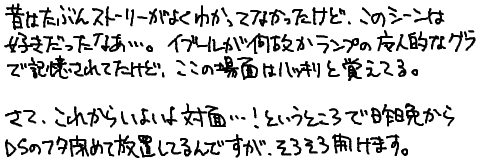 昔はたぶんストーリーがよくわかってなかったけど、このシーンは
好きだったなあ…。イブールが何故かランプの魔人的なグラ
で記憶されてたけど、ここの場面はハッキリと覚えてる。
さて、これからいよいよ対面…!というところで昨晩から
DSのフタ閉めて放置してるんですが、そろそろ開けます。